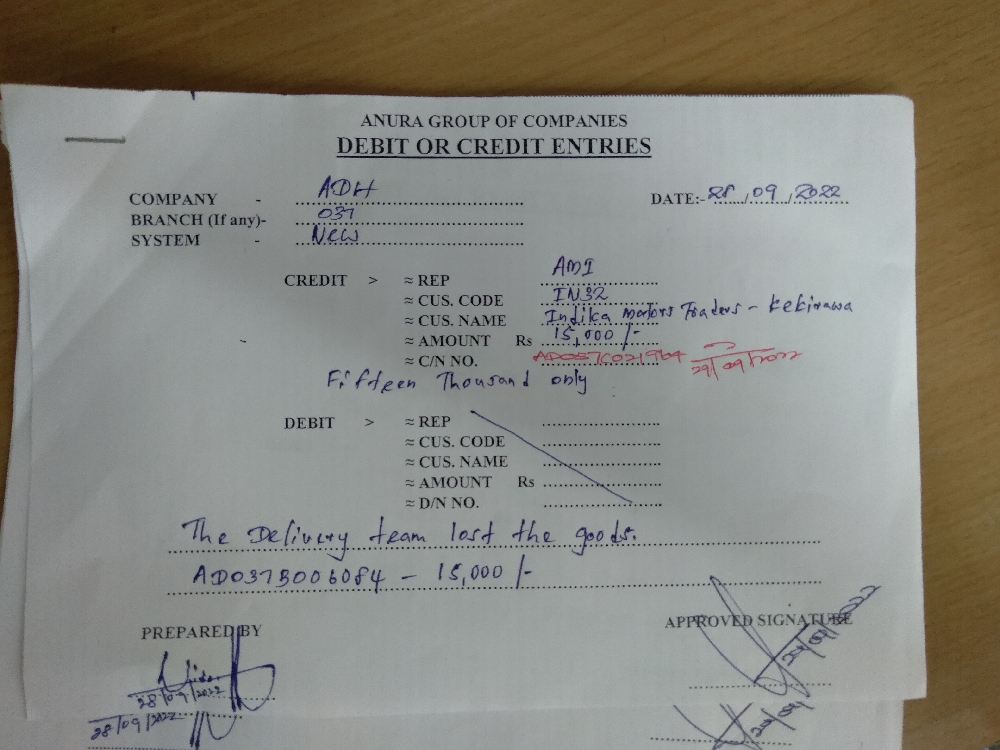 ANURA GROUP OF COMPANIES
DEBIT OR CREDIT ENTRIES
COMPANY - ADH DATE:- 28/09/2022
BRANCH (If any)- 037
SYSTEM - New
CREDIT > ≈ REP AMI
≈ CUS. CODE IN32
≈ CUS. NAME Indika motors Traders - Kekirawa
≈ AMOUNT Rs 15,000/-
≈ C/N NO. 29/09/2022
Fifteen Thousand only
DEBIT > ≈ REP
≈ CUS. CODE
≈ CUS. NAME
≈ AMOUNT Rs
≈ D/N NO.
The Delivery team lost the goods.
AD037B006084 - 15,000/-
PREPARED BY APPROVED SIGNATURE
28/09/2022
28/09/2022